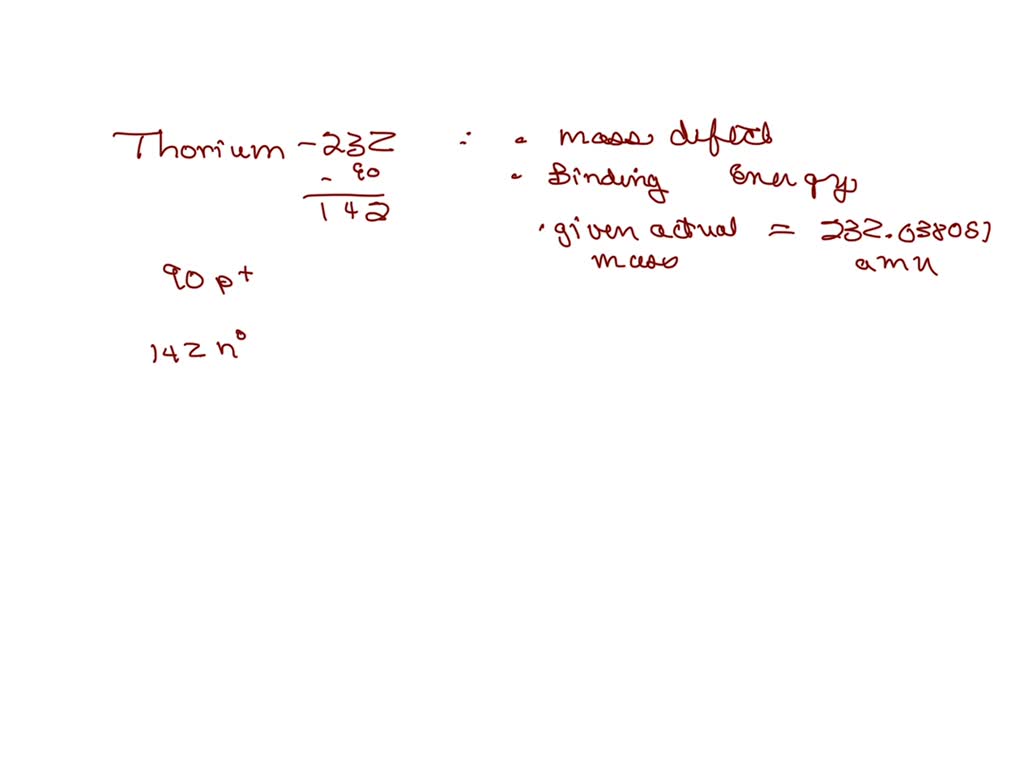 Thorium -232 : • mass defect
- 90 • Binding Energy
142
• given actual = 232.038051
mass amu
90 p+
142 n°